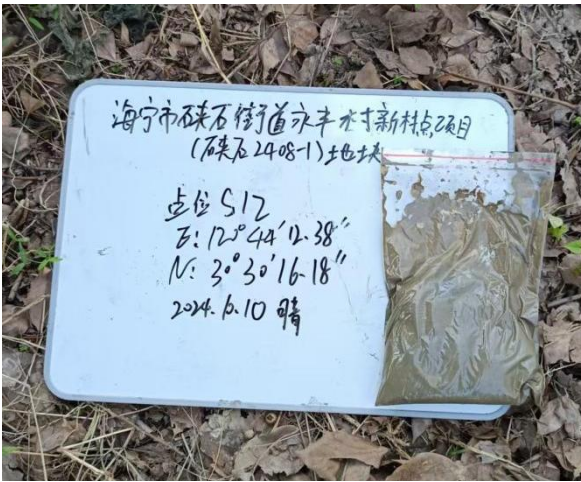 海宁市硖石街道永丰村新村点项目
(硖石2408-1)地块
点位 S12
E: 120°44′12.38″
N: 30°30′16.18″
2024.6.10 晴